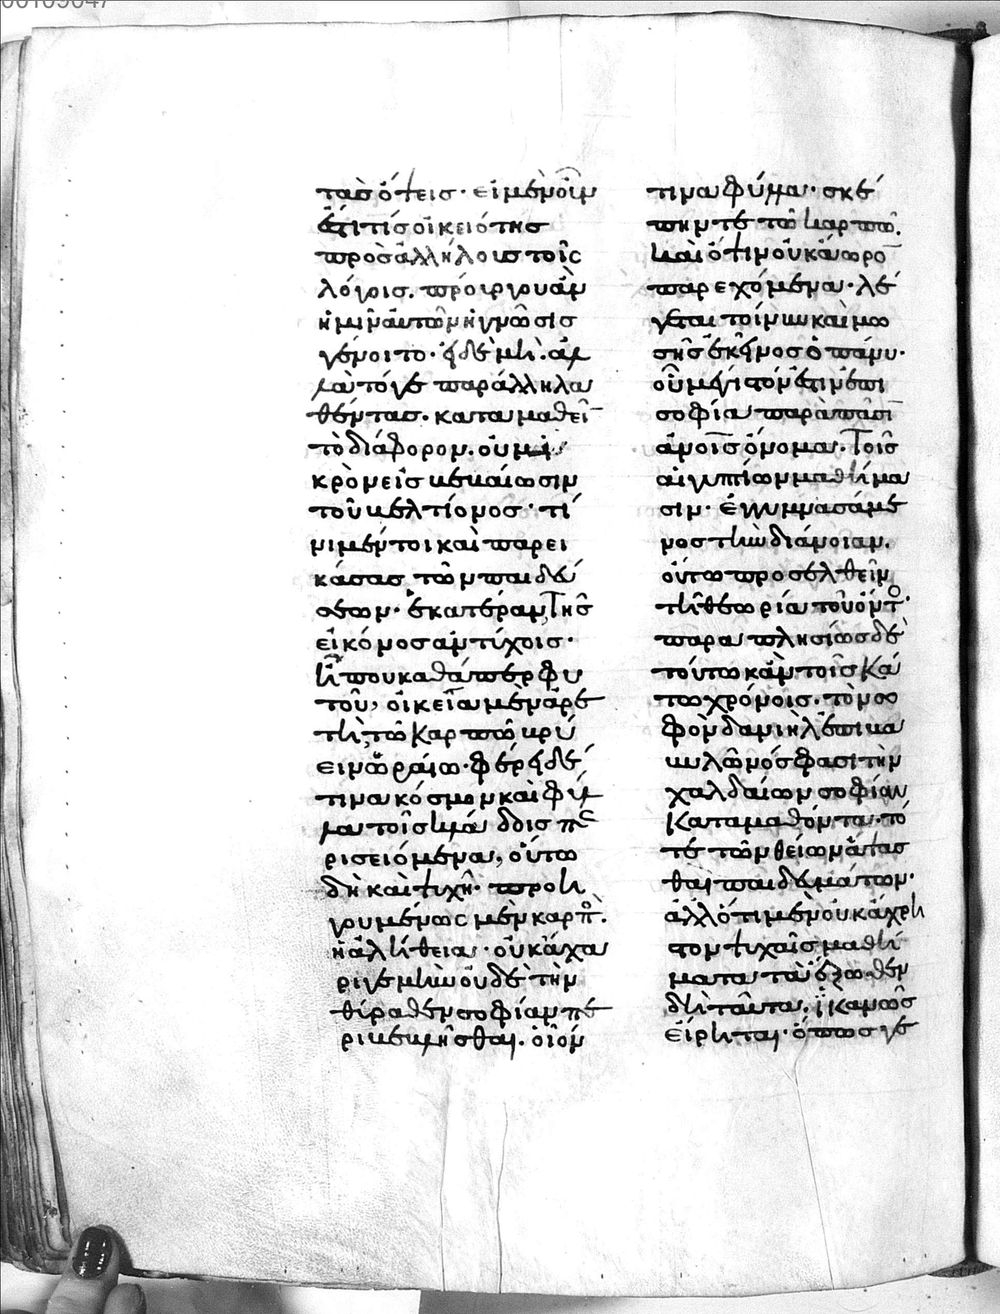 τασ ὄψεις· εἰ μὲν οὖν
ἔστι τίσ οἰκειότης
πρὸσ ἀλλήλουσ τοῖς
λόγοισ. προύργου ἂν
ἡμῖν αὐτῶν ἡ γνῶσισ
γένοιτο· εἰ δὲ μὴ. ἀλ
λὰ τό γε παράλληλα
θέντασ. καταμαθεῖν
τὸ διάφορον. οὐ μι
κρὸν εἰσ βεβαίωσιν
τοῦ βελτίονοσ· τί
νι μέντοι καὶ παρει
κάσασ τῶν παιδεύ
σεων· ἑκατέραν, Τῆσ
εἰκόνοσ ἂν τύχοισ·
ἦ που καθάπερ φυ
τοῦ, οἰκεία μὲν ἀρε
τὴ, τῶ καρπῶ βρύ
ειν ὡραίω· φέρει δέ
τινα κόσμον καὶ φύλ
λα τοῖσ κλάδοισ πε
ρισειόμενα, οὕτω
δὴ καὶ ψυχῆ· προη
γουμένως μὲν καρπὸς.
ἡ ἀλήθεια· οὐκ ἄχα
ρί γε μὴν οὐδὲ τὴν
θύραθεν σοφίαν πε
ριβεβλῆσθαι. οἷόν
τινα φύλλα· σκέ
πην τε τῶ καρπῶ.
καὶ ὄψιν οὐκ ἄωρον
παρεχόμενα· λέ
γεται τοίνυν καὶ μω
σῆσ ἐκεῖνοσ ὁ πάνυ·
οὗ μέγιστόν ἐστιν ἐπὶ
σοφία παρὰ πᾶσιν
ἀνοῖσ ὄνομα· Τοῖσ
αἰγυπτίων μαθήμα
σιν· ἐγγυμνασάμε
νοσ τὴν διάνοιαν.
οὕτω προσελθεῖν
τῆ θεωρία τοῦ ὄντος·
παραπλησίωσ δὲ
τούτω κἂν τοῖσ κά
τω χρόνοις. τὸν σο
φὸν δανιὴλ ἐπὶ βα
βυλῶνόσ φασι τὴν
χαλδαίων σοφίαν
καταμαθόντα· τό
τε τῶν θείων ἅψασ
θαι παιδευμάτων·
ἀλλ ὅτι μὲν οὐκ ἄχρη
στον ψυχαῖσ μαθή
ματα τὰ ἔξωθεν
δὴ ταῦτα. ἱκανῶσ
εἴρηται· ὅπωσ γε